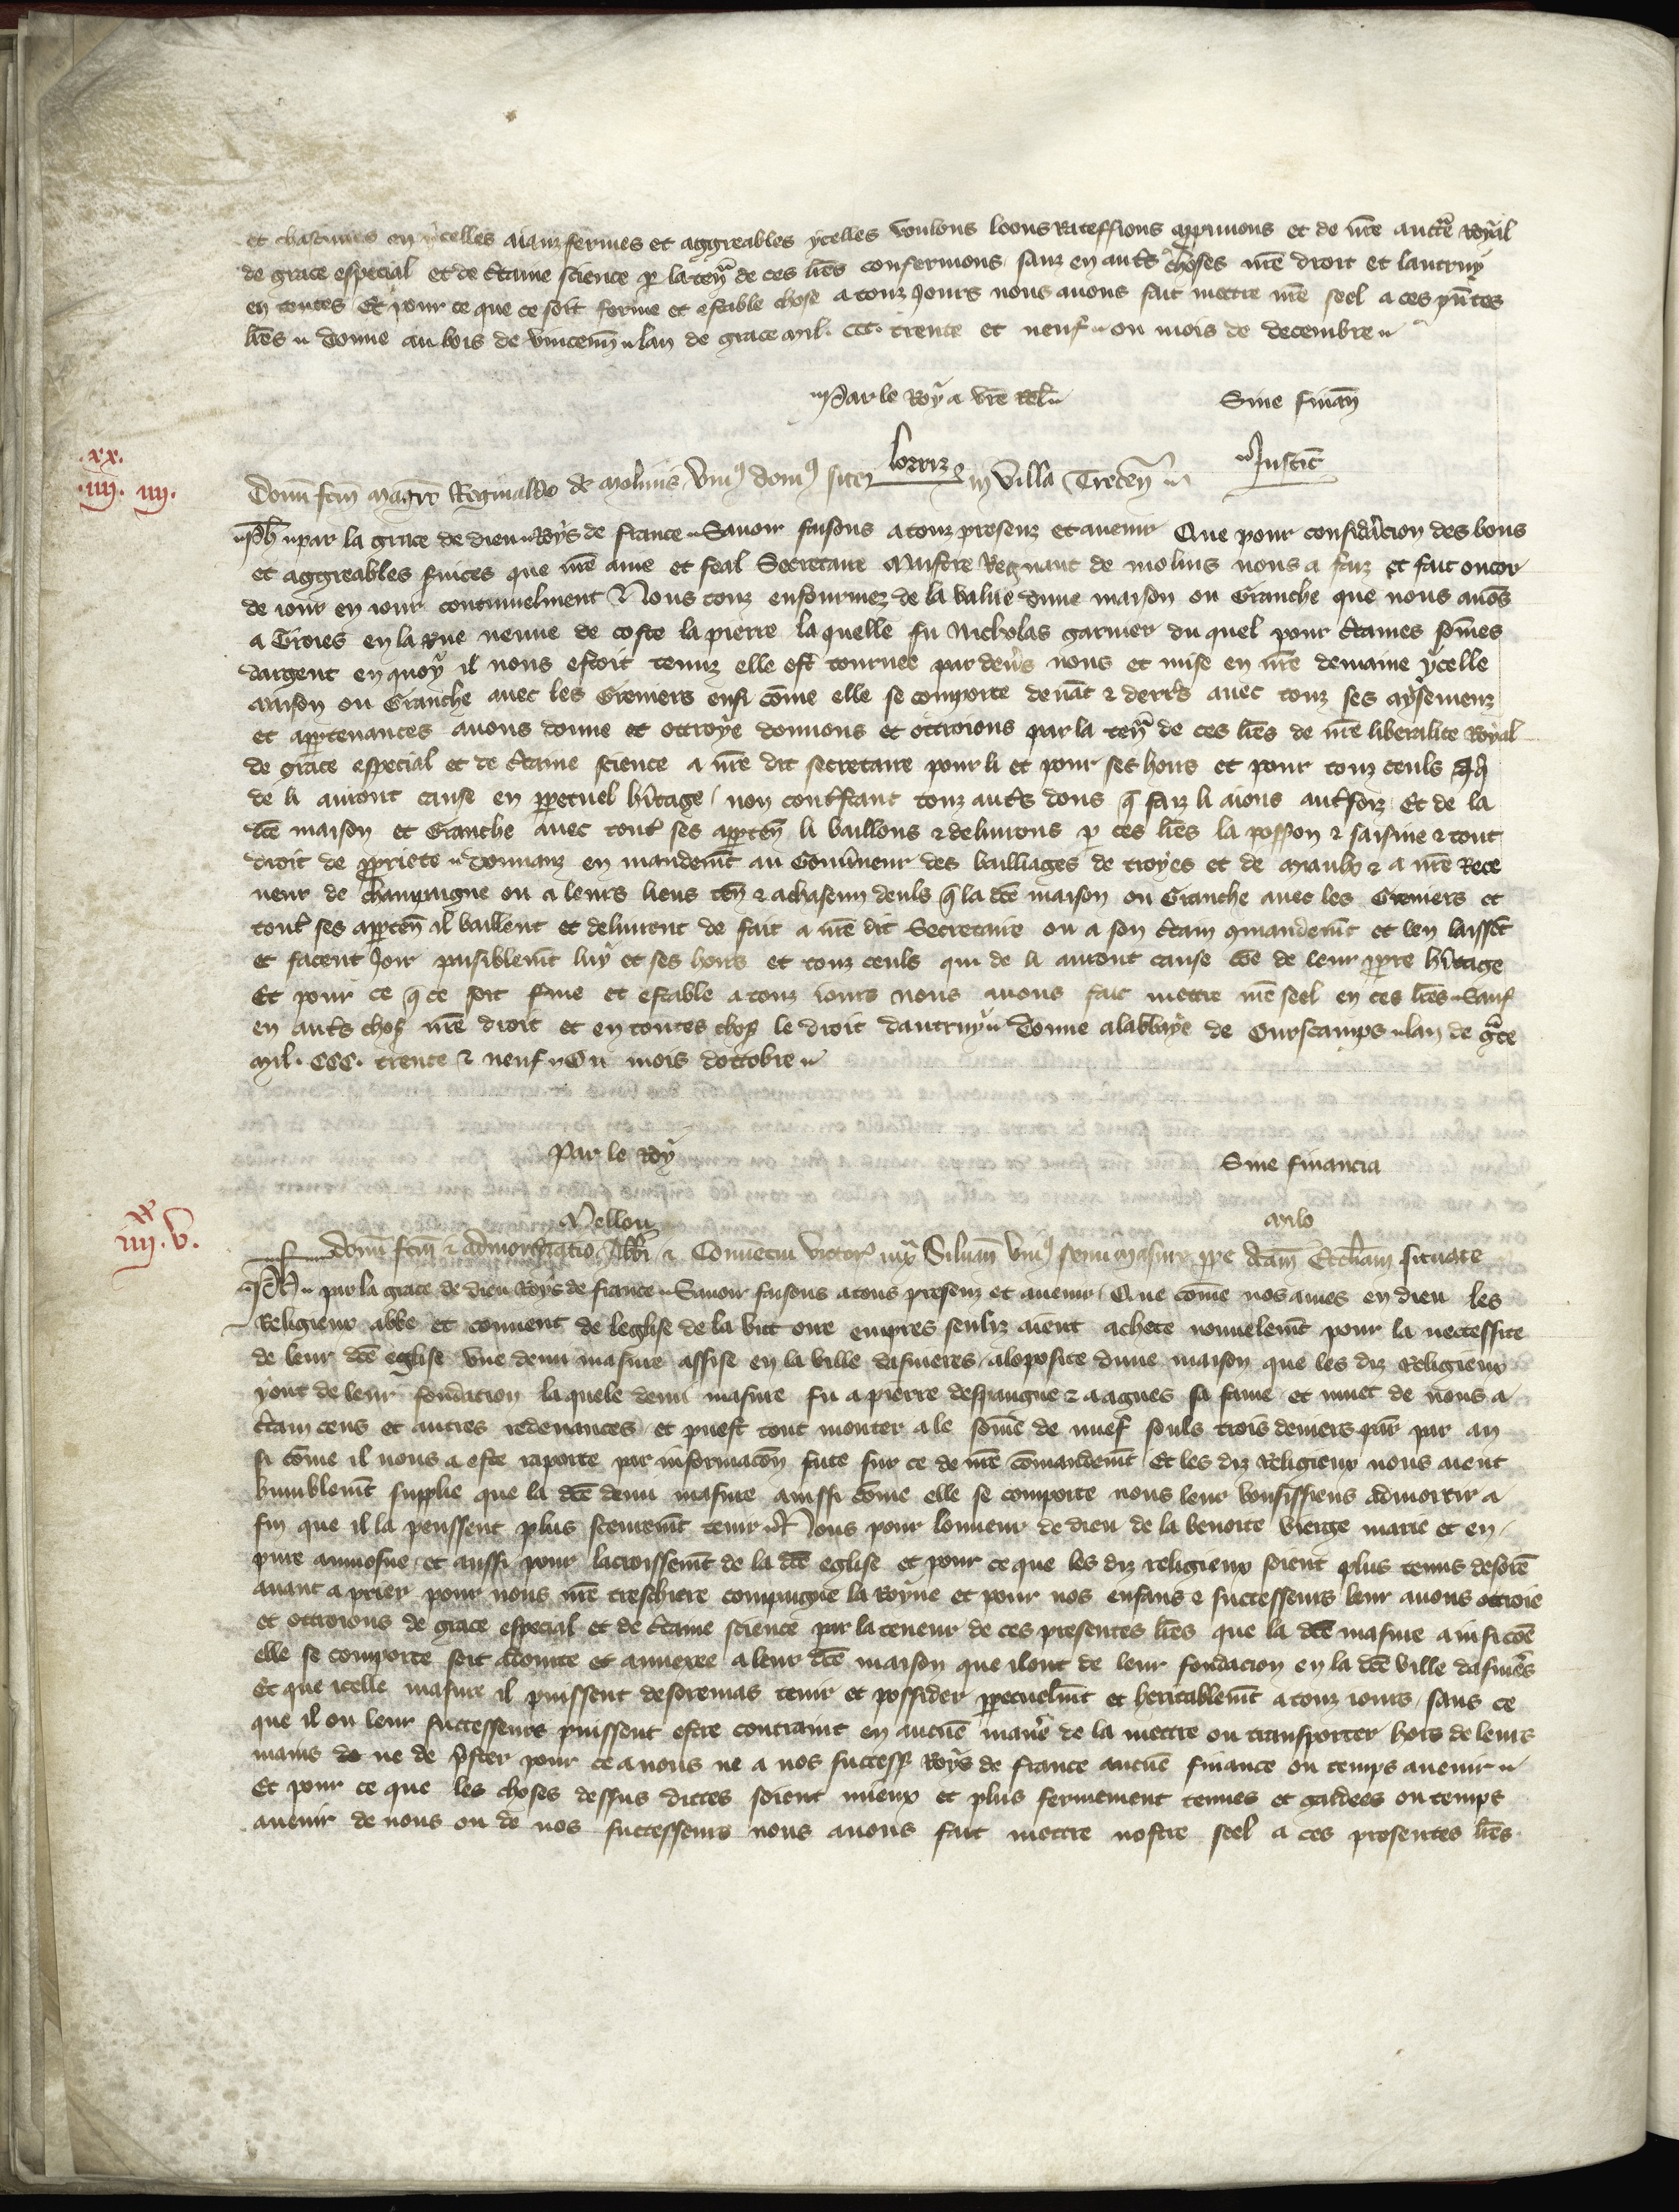 et chascunes en ycelles aianz fermes et aggreables ycelles voulons loons rateffions approuuons et de nr̄e auct̄e royal
de grace especial et de c̄taine science p̱ la ten̄ de ces l̄res confermons sanz en aut̄s choses nr̄e droit et lautruy
en toutes Et pour ce que ce soit ferme et estable chose a touz jours nous auons fait mettre nr̄e seel a ces pn̄tes
l̄res donne au bois de vincenn̄ lan de grace mil. ccc. trente et neuf ou mois de decembre
Par le Roy a vr̄e rel̄ Sine finan̄
Lorriz Justic̄
.xx.
.iiij. iiij.
Donū fcm̄ magrō Reginaldo de molinis vniꝰ domꝰ site in villa Trecen̄
Ph̄ par la grace de dieu Roys de france Sauoir faisons a touz presenz et auenir Que pour consid̄acion des bons
et aggreables s̄uices que nr̄e ame et feal Secretaire Maistre Regnaut de molins nous a faiz et fait encor
de iour en iour continuelment Nous touz enfourmez de la value dune maison ou Granche que nous auōs
a Troies en la rue neuue de coste la pierre la quelle fu Nicholas garnier du quel pour c̄taines som̄es
dargent en quoy il nous estoit tenuz elle est tournee par deu̓s nous et mise en nr̄e demaine ycelle
maison ou Granche auec les Greniers ensi cōme elle se comporte deuāt & derr̄s auec touz ses aysemenz
et apꝑtenances auons donne et ottroye donnons et ottroions par la ten̄ de ces l̄res de nr̄e liberalite royal
de grace especial et de c̄taine science a nr̄e dit secretaire pour li et pour ses hoirs et pour touz ceuls qi
de li auront cause en ꝑpetuel h̄itage non cont̄stant touz aut̄s dons q̄ faiz li aions aut̄foiz Et de la
dc̄e maison et Granche auec tout̄ ses apꝑten̄ li baillons & deliurons p̱ ces l̄res la possōn & saisine & tout
droit de ꝓpriete donnanz en mandem̄t au Gouu̓neur des bailliages de troyes et de Meaulx & a nr̄e Rece
ueur de champaigne ou a leurs lieus ten̄ & a chascun deuls q̄ la dc̄e maison ou Granche auec les Greniers et
tout̄ ses apꝑten̄ il baillent et deliurent de fait a nr̄e dit Secretaire ou a son c̄tain ꝯmandem̄t et len laissēt
et facent joir paisiblem̄t luy et ses hoirs et touz ceuls qui de li auront cause cōe de leur ꝓpre h̄itage
Et pour ce q̄ ce soit f̄me et estable a touz iours nous auons fait mettre nr̄e seel en ces l̄res Sauf
en aut̄s chos̄ nr̄e droit et en toutes chos̄ le droit dautruy Donne a labbaye de Ourscamps lan de gc̄e
mil. CCC. trente & neuf Ou mois dottobre
Par le Roy Sine financia
Mellou Milo
xx
iiij. v.
Donū fcm̄ & admortizatio Abb̄i & Conuentui victor̄ iuxᵃ Siluan̄ vniꝰ semi masure ꝓpe dc̄am Ecc̄liam situate
Ph̄ par la grace de dieu Roys de france Sauoir faisons a tous presenz et auenir Que cōme nos ames en dieu les
Religieux abbe et conuent de leglise de la vict oire empres senliz aient achete nouuelem̄t pour la neccessite
de leur dc̄e eglise vne demi masure assise en la ville dasnieres a loposite dune maison que les diz Religieux
y ont de leur fondacion laquele demi masure fu a pierre despaigne & a agnes sa fame et muet de nous a
c̄tain cens et autres redeuances et puest tout monter a le som̄e de nuef souls trois deniers par̄ par an
si cōme il nous a este raporte par informacōn faite sur ce de nr̄e cōmandem̄t Et les diz Religieux nous aient
humblem̄t supplie que la dc̄e demi masure ainssi cōme elle se comporte nous leur vousissiens admortir a
fin que il la peussent plus seurem̄t tenir Nous pour lonneur de dieu de la benoite vierge marie et en
pure aumosne et aussi pour lacroissem̄t de la dc̄e eglise et pour ce que les diz religieux soient plus tenus desorē
auant a prier pour nous nr̄e treschiere compaigne la Royne et pour nos enfans & successeurs leur auons ottroie
et ottroions de grace especial et de c̄taine science par la teneur de ces presentes l̄res que la dc̄e masure ainsi cōe
elle se comporte soit aiointe et annexee a leur dc̄e maison que il ont de leur fondacion en la dc̄e ville dasnier̄s
Et que icelle masure il puissent desoremais tenir et possider ꝑpetuelm̄t et heritablem̄t a touz iours sans ce
que il ou leur successeurs puissent estre contraint en aucūe mani̓e de la mettre ou transporter hors de leurs
mains de ne de p̄ster pour ce a nous ne a nos success̄ Roys de france aucūe finance ou temps auenir
Et pour ce que les choses dessus dictes soient mieux et plus fermement tenues et gardees ou temps
auenir de nous ou de nos successeurs nous auons fait mettre nostre seel a ces presentes l̄res